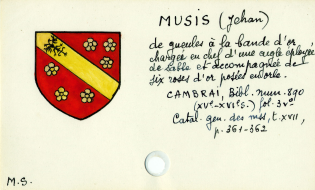 MUSIS (Jehan)
de gueules à la bande d'or
chargée en chef d'une aigle éployée
de sable et accompagnée de
six roses d'or posées en orle.
CAMBRAI, Bibl. mun. 890
(XVe-XVIe s.) fol. 3vo
Catal. gén. des mss, t. XVII,
p. 361-362
M.S.